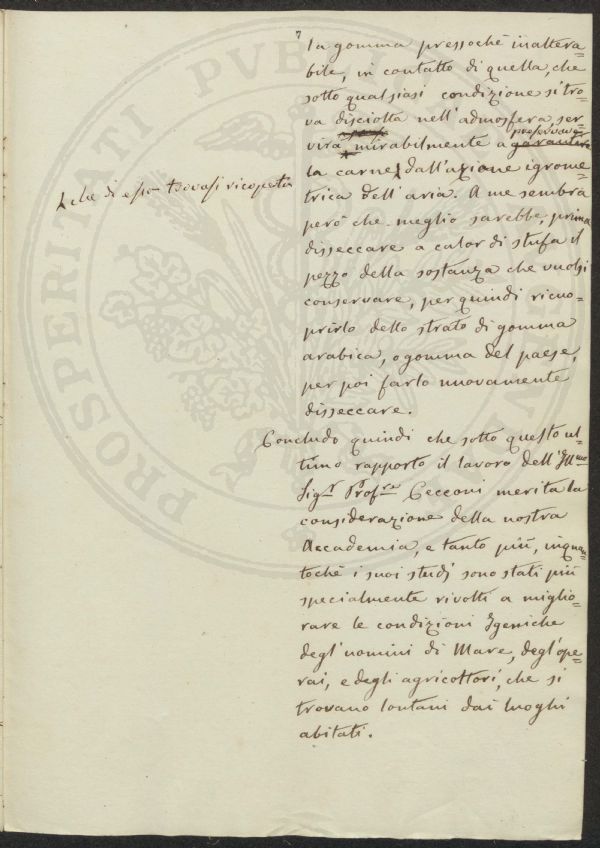 7
la gomma pressoché inaltera=
bile, in contatto di quella, che
sotto qualsiasi condizione si tro=
va disciolta nell'admosfera, ser=
virà mirabilmente a garantire preservare
la carne, dall'azione igrome=
che di essa trovasi ricoperta
trica dell'aria. A me sembra
però che meglio sarebbe, prima
disseccare a calor di stufa il
pezzo della sostanza che vuolsi
conservare, per quindi ricuo=
prirlo dello strato di gomma
arabica, o gomma del paese,
per poi farlo nuovamente
disseccare.
Concludo quindi che sotto questo ul=
timo rapporto il lavoro dell'Illmo
Sigr Profre Cecconi merita la
considerazione della nostra
Accademia, e tanto più, inquan=
tochè i suoi studi sono stati più
specialmente rivolti a miglio=
rare le condizioni Igeniche
degl'uomini di Mare, degl'ope=
rai, e degli agricottori, che si
trovano lontani dai luoghi
abitati.
PROSPERITATI PVBLI